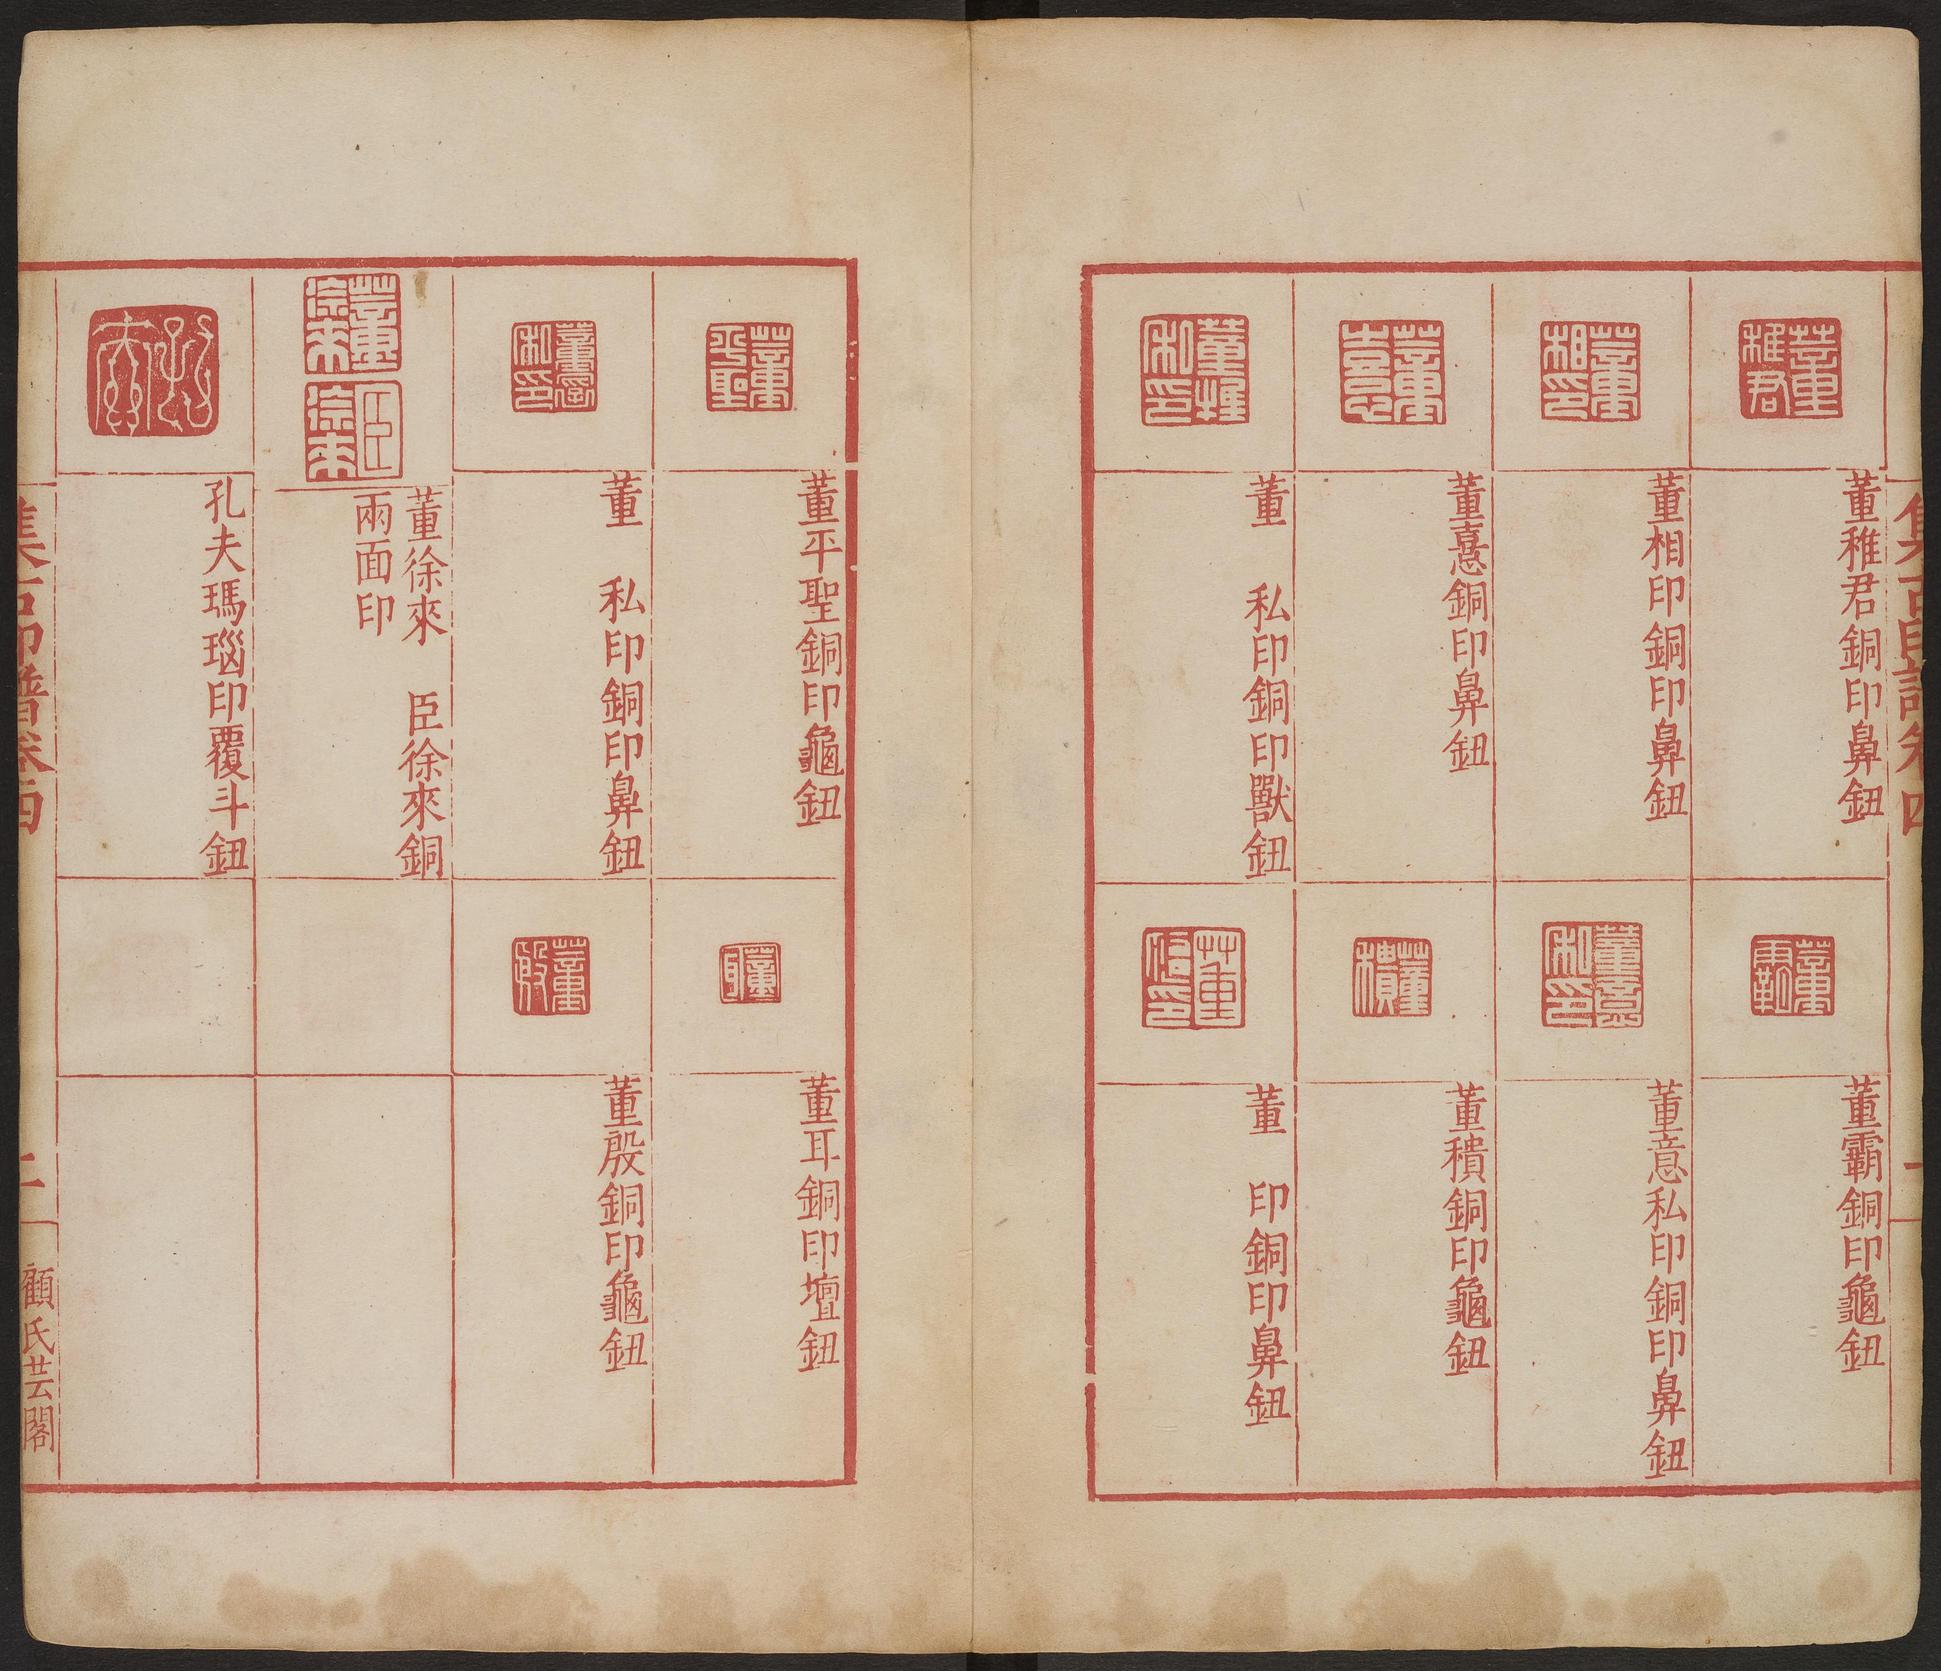 集古印譜卷四
董稚君銅印鼻鈕
董霸銅印龜鈕
董相印銅印鼻鈕
董意私印銅印鼻鈕
董憙銅印鼻鈕
董穨銅印龜鈕
董　私印銅印獸鈕
董　印銅印鼻鈕
董平聖銅印龜鈕
董耳銅印壇鈕
董　私印銅印鼻鈕
董殷銅印龜鈕
董徐來　臣徐來銅
兩面印
孔夫瑪瑙印覆斗鈕
集古印譜卷四
二
顧氏芸閣